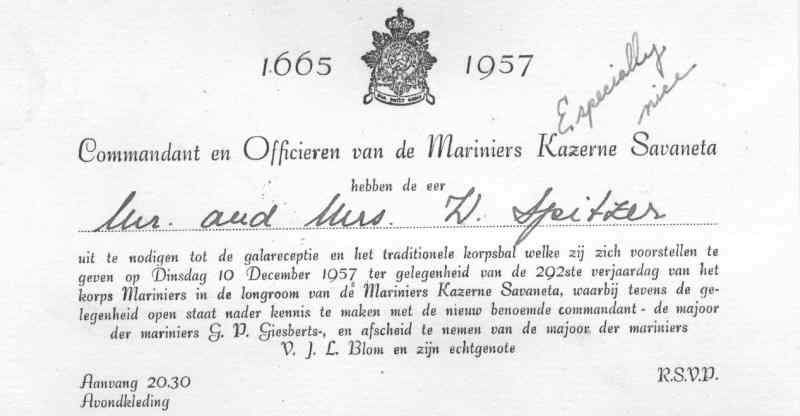 1665 1957
Especially
nice
Commandant en Officieren van de Mariniers Kazerne Savaneta
hebben de eer
Mr. and Mrs. W. Spitzer
uit te nodigen tot de galareceptie en het traditionele korpsbal welke zij zich voorstellen te
geven op Dinsdag 10 December 1957 ter gelegenheid van de 292ste verjaardag van het
korps Mariniers in de longroom van de Mariniers Kazerne Savaneta, waarbij tevens de ge-
legenheid open staat nader kennis te maken met de nieuw benoemde commandant - de majoor
der mariniers G. P. Giesberts-, en afscheid te nemen van de majoor der mariniers
V. J. L. Blom en zijn echtgenote
Aanvang 20.30
R.S.V.P.
Avondkleding